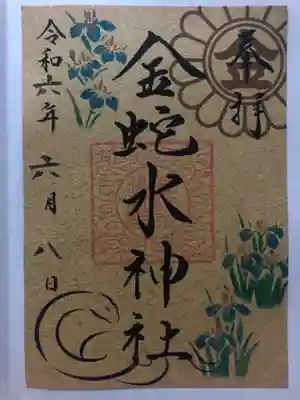 奉拝
金
金蛇水神社
令和六年六月八日